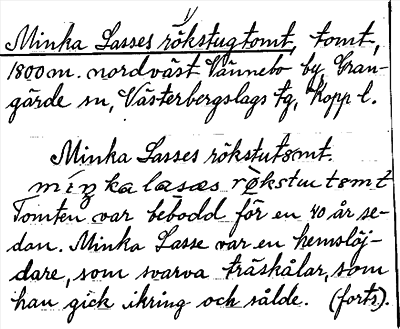 Minka Lasses rökstugtomt, tomt,
1800 m. nordväst Vännebo by, Gran-
gärde sn, Västerbergslags tg, Kopp l.
Minka Lasses rökstutomt.
miŋkalasæs røkstutsmt
Tomten var bebodd för en 40 år se-
dan. Minka Lasse var en hemslöj-
dare, som svarva träskålar, som
han gick ikring och sålde. (forts).